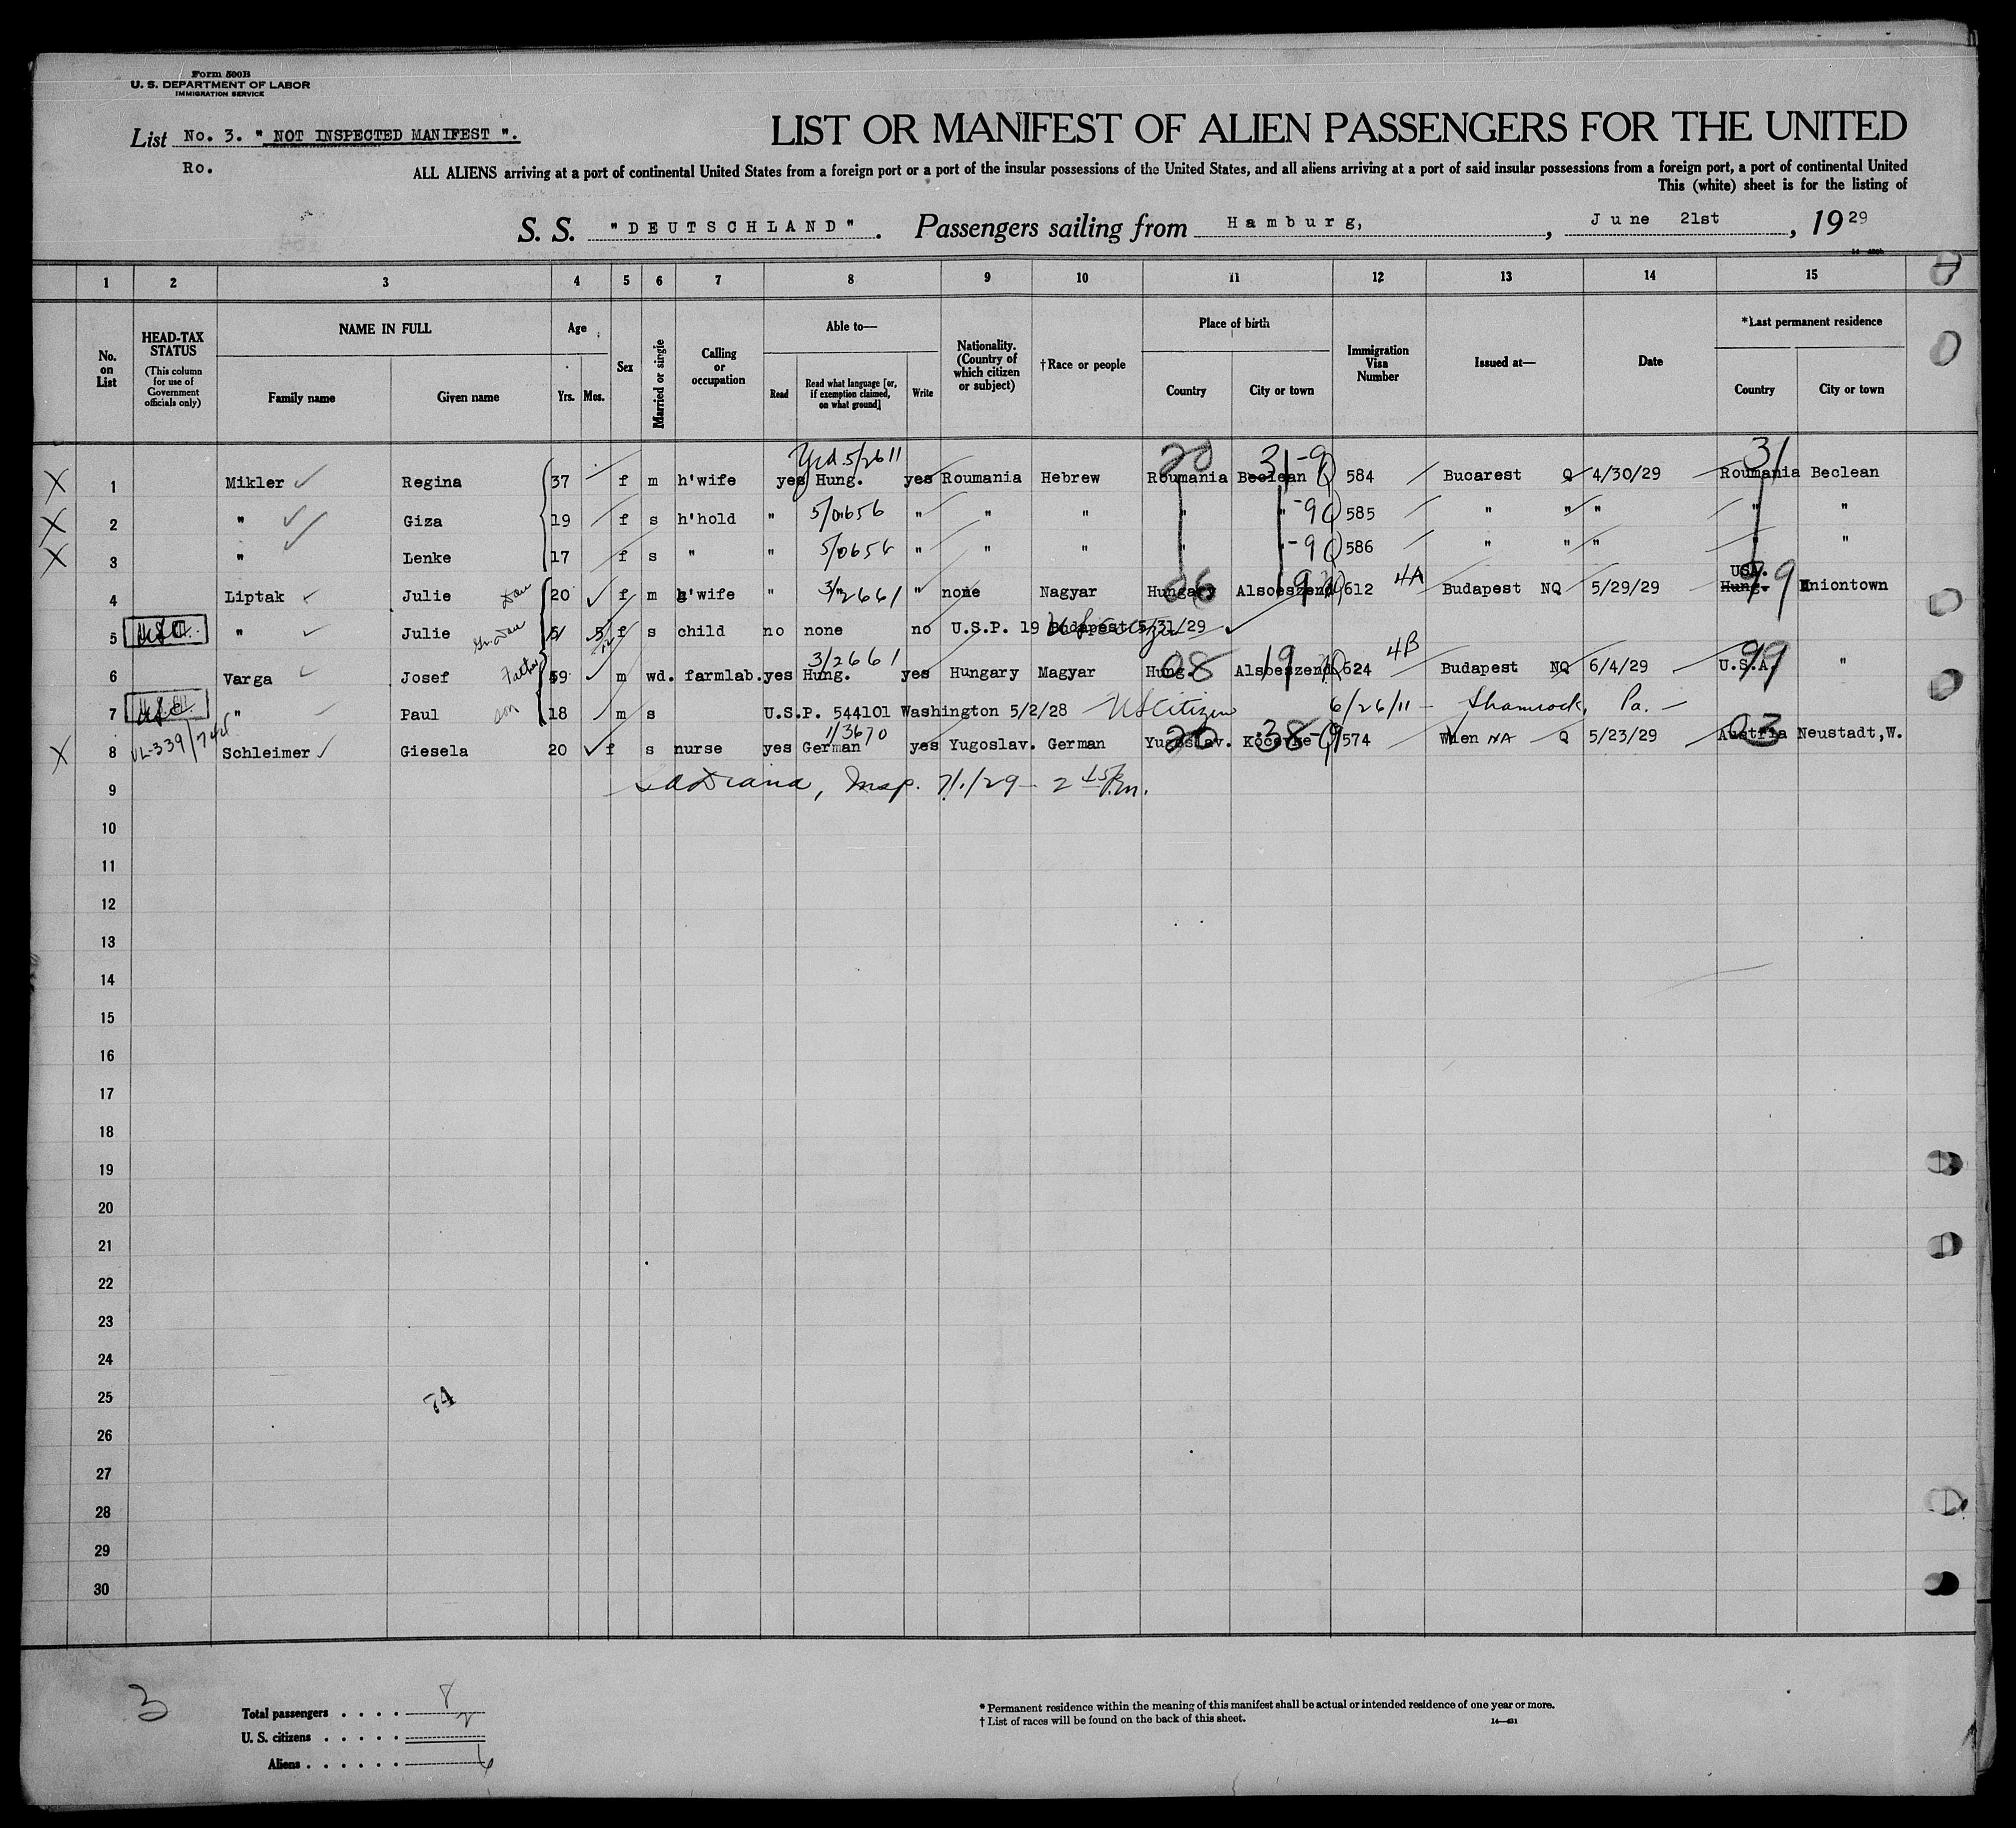 Form 500B
U. S. DEPARTMENT OF LABOR
IMMIGRATION SERVICE
List No. 3. " NOT INSPECTED MANIFEST ".
Ro.
LIST OR MANIFEST OF ALIEN PASSENGERS FOR THE UNITED
ALL ALIENS arriving at a port of continental United States from a foreign port or a port of the insular possessions of the United States, and all aliens arriving at a port of said insular possessions from a foreign port, a port of continental United
This (white) sheet is for the listing of
S. S. "DEUTSCHLAND" . Passengers sailing from Hamburg, , June 21st , 1929
1 2 3 4 5 6 7 8 9 10 11 12 13 14 15
No. on List
HEAD-TAX STATUS (This column for use of Government officials only)
NAME IN FULL Family name Given name
Age Yrs. Mos.
Sex
Married or single
Calling or occupation
Able to— Read Read what language [or, if exemption claimed, on what ground] Write
Nationality. (Country of which citizen or subject)
†Race or people
Place of birth Country City or town
Immigration Visa Number
Issued at—
Date
*Last permanent residence Country City or town
Yid. 5/2611 20 31-9 31
X 1 Mikler Regina 37 f m h'wife yes Hung. yes Roumania Hebrew Roumania Beclean 584 Bucarest Q 4/30/29 Roumania Beclean
X 2 " Giza 19 f s h'hold " 5/0656 " " " " " -9 585 " " " " "
X 3 " Lenke 17 f s " " 5/0656 " " " " " -9 586 " " " " "
4 Liptak Julie Dau 20 f m h'wife " " 3/2661 " none Nagyar Hungary 06 Alsoeszend 19 612 4A Budapest NQ 5/29/29 Hung. USA. 99 Uniontown
5 USC. " Julie Gr. Dau 5 f s child no none no U.S.P. 19 Budapest 5/31/29 US Citizen
6 Varga Josef Father 59 m wd. farmlab. yes Hung. 3/2661 yes Hungary Magyar Hung. 08 Alsoeszend 19 624 4B Budapest NQ 6/4/29 U.S.A. 99 "
7 USC. " Paul son 18 m s U.S.P. 544101 Washington 5/2/28 US Citizen 6/26/11 - Shamrock, Pa. -
8 X Schleimer Giesela 20 f s nurse yes German 1/3670 yes Yugoslav. German Yugoslav. 26 Kocevke 38-9 574 Wien NA Q 5/23/29 Austria 03 Neustadt,W.
9 Insp. 7/1/29 - 2 45 P.m.
10
11
12
13
14
15
16
17
18
19
20
21
22
23
24
25
26
27
28
29
30
74
3
Total passengers . . . . 8
U. S. citizens . . . . . 2
Aliens . . . . . . 6
* Permanent residence within the meaning of this manifest shall be actual or intended residence of one year or more.
† List of races will be found on the back of this sheet.
14—431